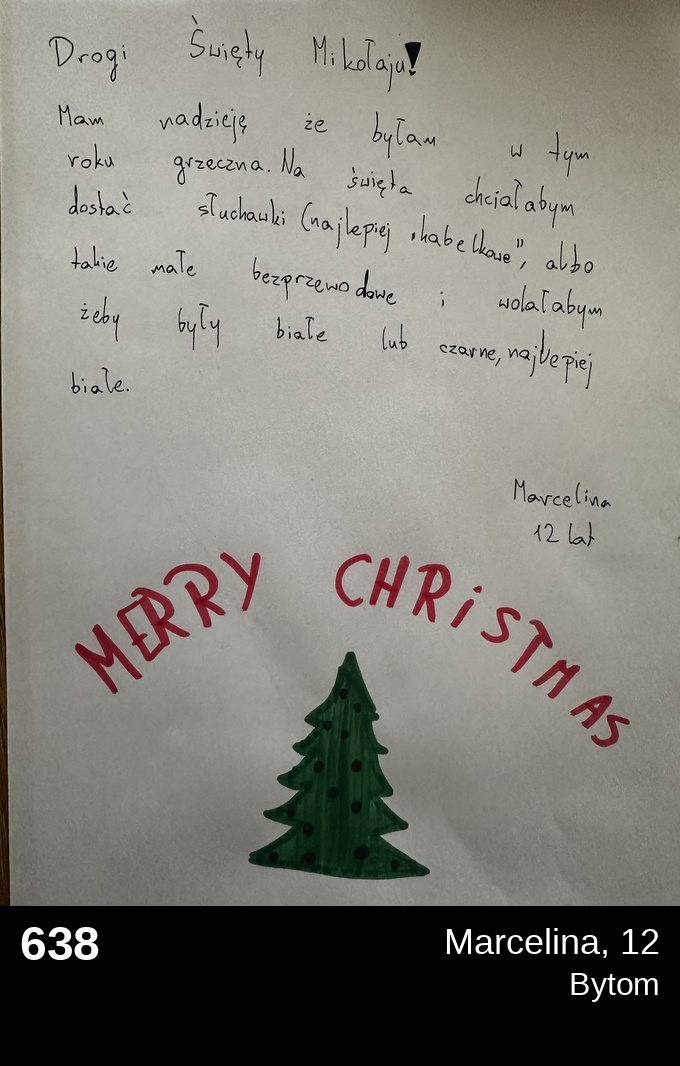 Drogi Święty Mikołaju!
Mam nadzieję że byłam w tym
roku grzeczna. Na święta chciałabym
dostać słuchawki (najlepiej „kabelkowe", albo
takie małe bezprzewodowe i wolałabym
żeby były białe lub czarne, najlepiej
białe.
Marcelina
12 lat
MERRY CHRiSTMAS
638
Marcelina, 12
Bytom